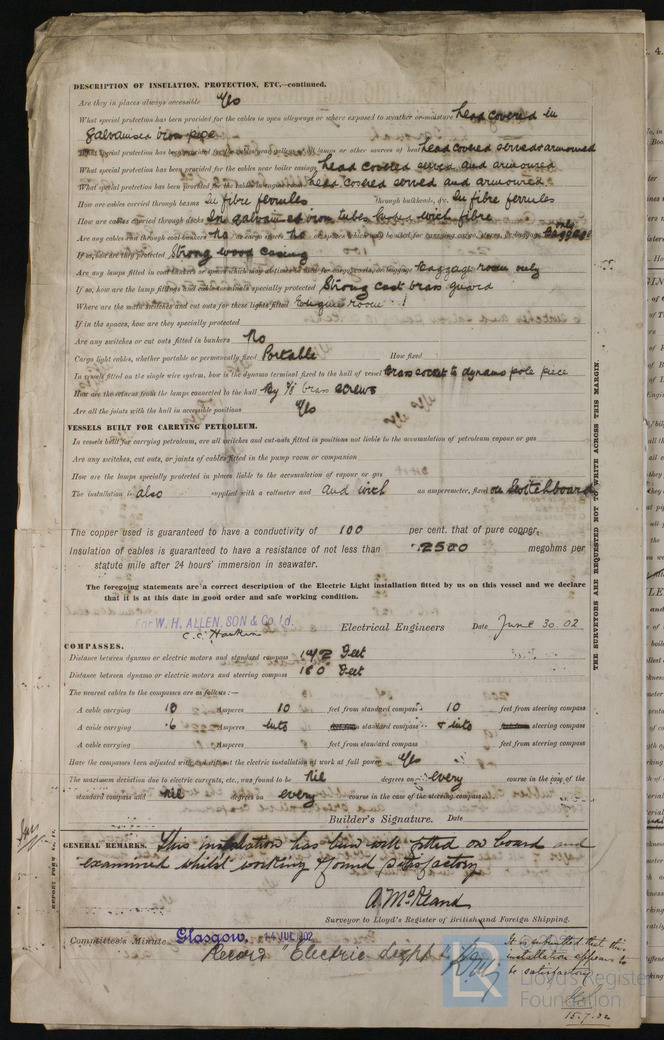 DESCRIPTION OF INSULATION, PROTECTION, ETC.—continued.
Are they in places always accessible Yes
What special protection has been provided for the cables in open alleyways or where exposed to weather or moisture Lead covered in
Galvanised iron pipe
What special protection has been provided for the cables near galleys or oil lamps or other sources of heat Lead covered served & armoured
What special protection has been provided for the cables near boiler casings Lead covered served and armoured
What special protection has been provided for the cables in engine room Lead covered served and armoured
How are cables carried through beams In fibre ferrules through bulkheads, &c. In fibre ferrules
How are cables carried through decks In galvanised iron tubes bushed with fibre
Are any cables run through coal bunkers No or cargo spaces No or spaces which may be used for carrying cargo, stores, or baggage only Baggage
If so, how are they protected Strong wood casing
Are any lamps fitted in coal bunkers or spaces which may at times be used for cargo, coals, or baggage Baggage room only
If so, how are the lamp fittings and cable terminals specially protected Strong cast brass guard
Where are the main switches and cut outs for these lights fitted Engine room
If in the spaces, how are they specially protected
Are any switches or cut outs fitted in bunkers No
Cargo light cables, whether portable or permanently fixed Portable How fixed
In vessels fitted on the single wire system, how is the dynamo terminal fixed to the hull of vessel Brass socket to dynamo pole piece
How are the returns from the lamps connected to the hull By 7/8 brass screws
Are all the joints with the hull in accessible positions Yes
VESSELS BUILT FOR CARRYING PETROLEUM.
In vessels built for carrying petroleum, are all switches and cut-outs fitted in positions not liable to the accumulation of petroleum vapour or gas
Are any switches, cut outs, or joints of cables fitted in the pump room or companion
How are the lamps specially protected in places liable to the accumulation of vapour or gas
The installation is also supplied with a voltmeter and and with an amperemeter, fixed on Switchboard
The copper used is guaranteed to have a conductivity of 100 per cent. that of pure copper.
Insulation of cables is guaranteed to have a resistance of not less than 2500 megohms per
statute mile after 24 hours' immersion in seawater.
The foregoing statements are a correct description of the Electric Light installation fitted by us on this vessel and we declare
that it is at this date in good order and safe working condition.
For W. H. ALLEN, SON & Co. Ld.
Electrical Engineers Date June 30. 02
COMPASSES.
Distance between dynamo or electric motors and standard compass 142 feet
Distance between dynamo or electric motors and steering compass 180 feet
The nearest cables to the compasses are as follows:—
A cable carrying 18 Amperes 10 feet from standard compass 10 feet from steering compass
A cable carrying .6 Amperes into feet from standard compass & into feet from steering compass
A cable carrying Amperes feet from standard compass feet from steering compass
Have the compasses been adjusted with and without the electric installation at work at full power Yes
The maximum deviation due to electric currents, etc., was found to be Nil degrees on every course in the case of the
standard compass and nil degrees on every course in the case of the steering compass.
Builder's Signature. Date
GENERAL REMARKS. This installation has been well fitted on board and
examined whilst working & found satisfactory
Surveyor to Lloyd's Register of British and Foreign Shipping.
Committee's Minute Glasgow. 14 JUL 1902
Record "Electric Light"
It is submitted that this
installation appears to
be satisfactory
15.7.02
THE SURVEYORS ARE REQUESTED NOT TO WRITE ACROSS THIS MARGIN.
REPORT FORM No. 11.
LR
Lloyd's Register
Foundation